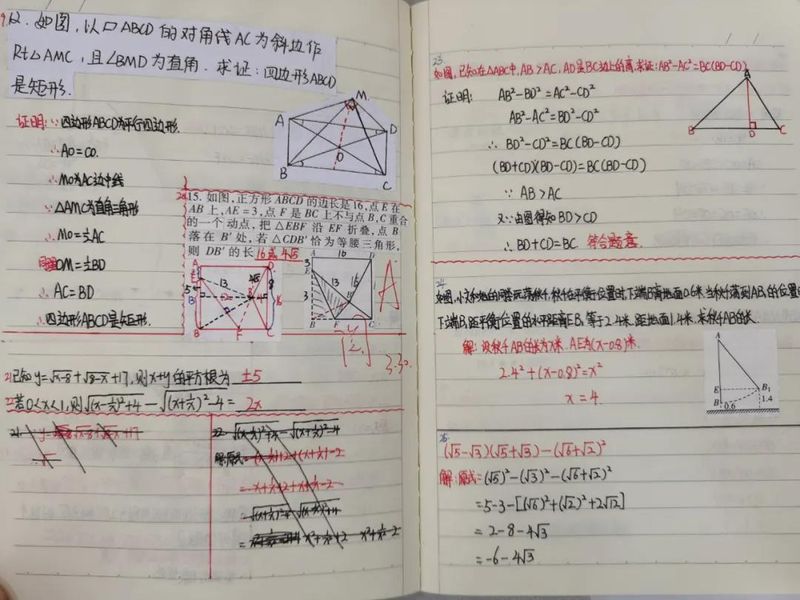 12. 如图,以▱ABCD的对角线AC为斜边作
Rt△AMC,且∠BMD为直角.求证:四边形ABCD
是矩形.
证明:∵四边形ABCD为平行四边形.
∴AO=CO.
∴MO为AC边中线
∵△AMC为直角三角形
∴MO=½AC
同理OM=½BD
∴AC=BD
∴四边形ABCD是矩形.
M
A
D
O
B
C
15. 如图,正方形ABCD的边长是16,点E在
AB上,AE=3,点F是BC上不与点B,C重合
的一个动点,把△EBF沿EF折叠,点B
落在B′处,若△CDB′恰为等腰三角形,
则DB′的长 16或4√5
A
3.30
21 已知y=√x-8+√8-x+17,则x+y的平方根为 ±5
22 若0<x<1,则√(x-1/x)²+4-√(x+1/x)²-4= 2x
23.
如图,已知在△ABC中,AB>AC,AD是BC边上的高,求证:AB²-AC²=BC(BD-CD)
证明: AB²-BD²=AC²-CD²
AB²-AC²=BD²-CD²
∴BD²-CD²=BC(BD-CD)
(BD+CD)(BD-CD)=BC(BD-CD)
∵AB>AC
又∵由图得知BD>CD
∴BD+CD=BC 符合题意.
A
B
D
C
24
下端B距平衡位置的水平距离EB₁等于2.4米,距地面1.4米,求秋千AB的长.
解:设秋千AB的长为x米,AE为(x-0.8)米.
2.4²+(x-0.8)²=x²
x=4
A
E
B₁
B
0.6
1.4
25
(√5-√3)(√5+√3)-(√6+√2)²
解:原式=(√5)²-(√3)²-(√6+√2)²
=5-3-[(√6)²+(√2)²+2√12]
=2-8-4√3
=-6-4√3